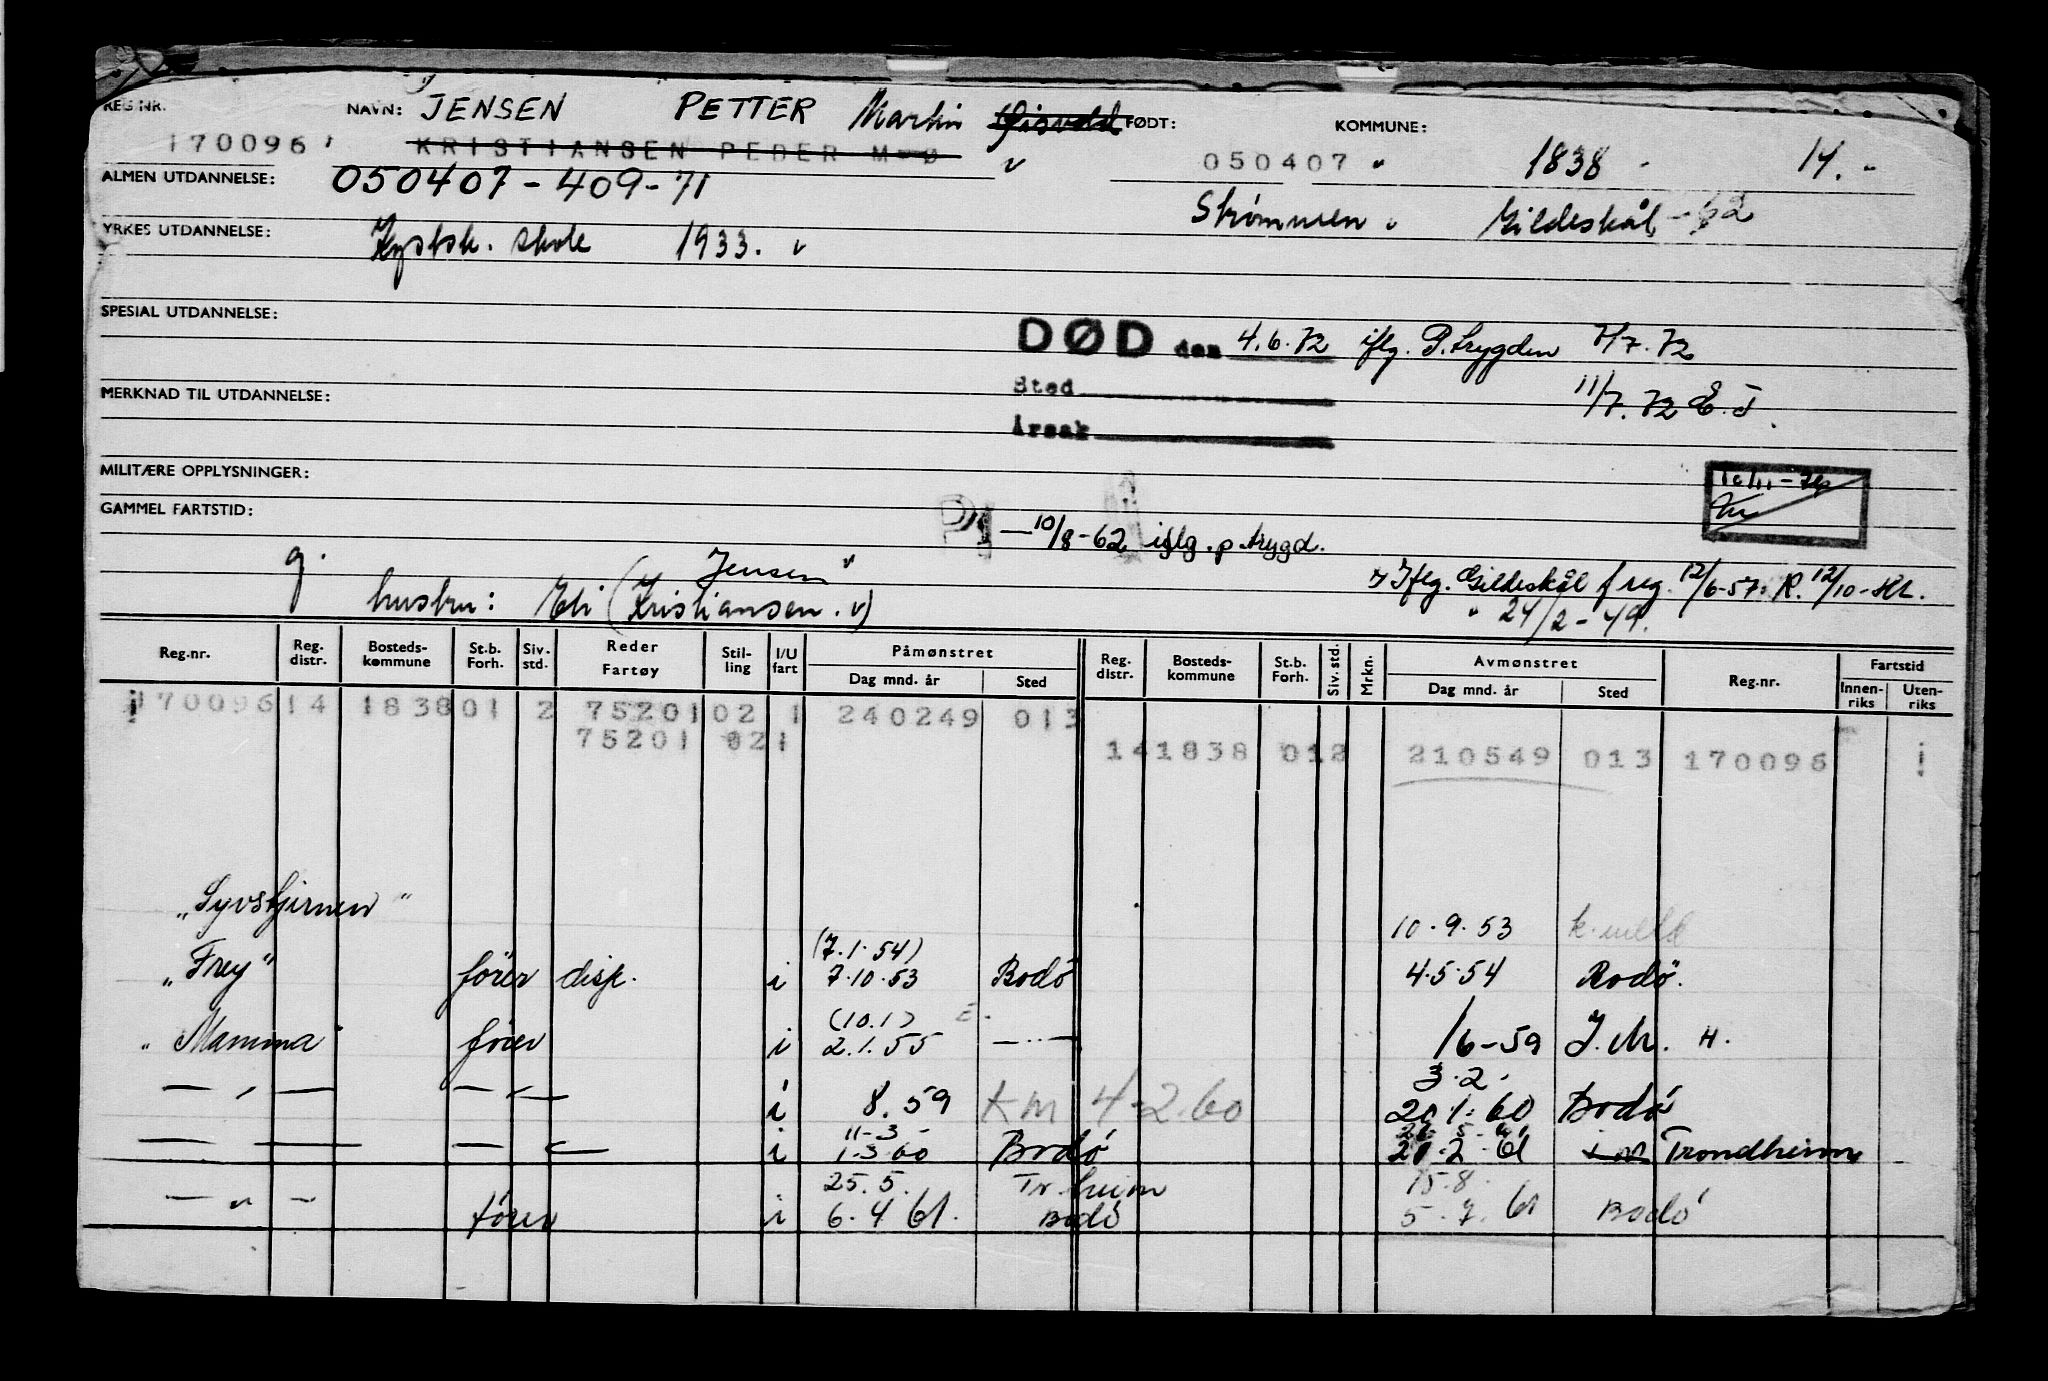 REG NR. NAVN: JENSEN PETTER Martin FØDT: KOMMUNE:
170096 KRISTIANSEN PEDER M-Ø 050407 1838 14.
ALMEN UTDANNELSE: 050407-409-71
Strømmen Gildeskål -62
YRKES UTDANNELSE: Kystsk. skole 1933.
SPESIAL UTDANNELSE:
DØD den 4.6.72 iflg. P.trygden 7/7.72
Sted
11/7.72 E.T.
MERKNAD TIL UTDANNELSE:
Årsak
MILITÆRE OPPLYSNINGER:
GAMMEL FARTSTID:
10/8-62 iflg. p.trygd.
g. Jensen
hustru: Eli (Kristiansen.)
Iflg. Gildeskål f reg. 12/6-57. K. 12/10-
" 24/2-49.
Reg.nr. Reg. distr. Bosteds-kommune St.b. Forh. Siv. std. Reder Fartøy Stil-ling I/U fart Påmønstret Dag mnd. år Sted Reg. distr. Bosteds-kommune St.b. Forh. Siv. std. Mrkn. Avmønstret Dag mnd. år Sted Reg.nr. Fartstid Innen-riks Uten-riks
170096 14 1838 01 2 75201 02 1 240249 013
75201 02 1 14 1838 01 2 210549 013 170096
„Syvstjernen"
10.9.53 k.meld
(7.1.54)
„Frey" fører disp. i 7.10.53 Bodø 4.5.54 Bodø.
(10.1)
" Mamma fører i 2.1.55 — " — 1/6-59 J.M. H.
3.2.
— " — — " — i 8.59 KM 4-2.60 20.1.60 Bodø
11-3-
— — — i 1-3-60 Bodø 21.2.61 Trondheim
25.5. Tr.heim 15.8.
— " — fører i 6.4 61. Bodø 5.7.61 Bodø